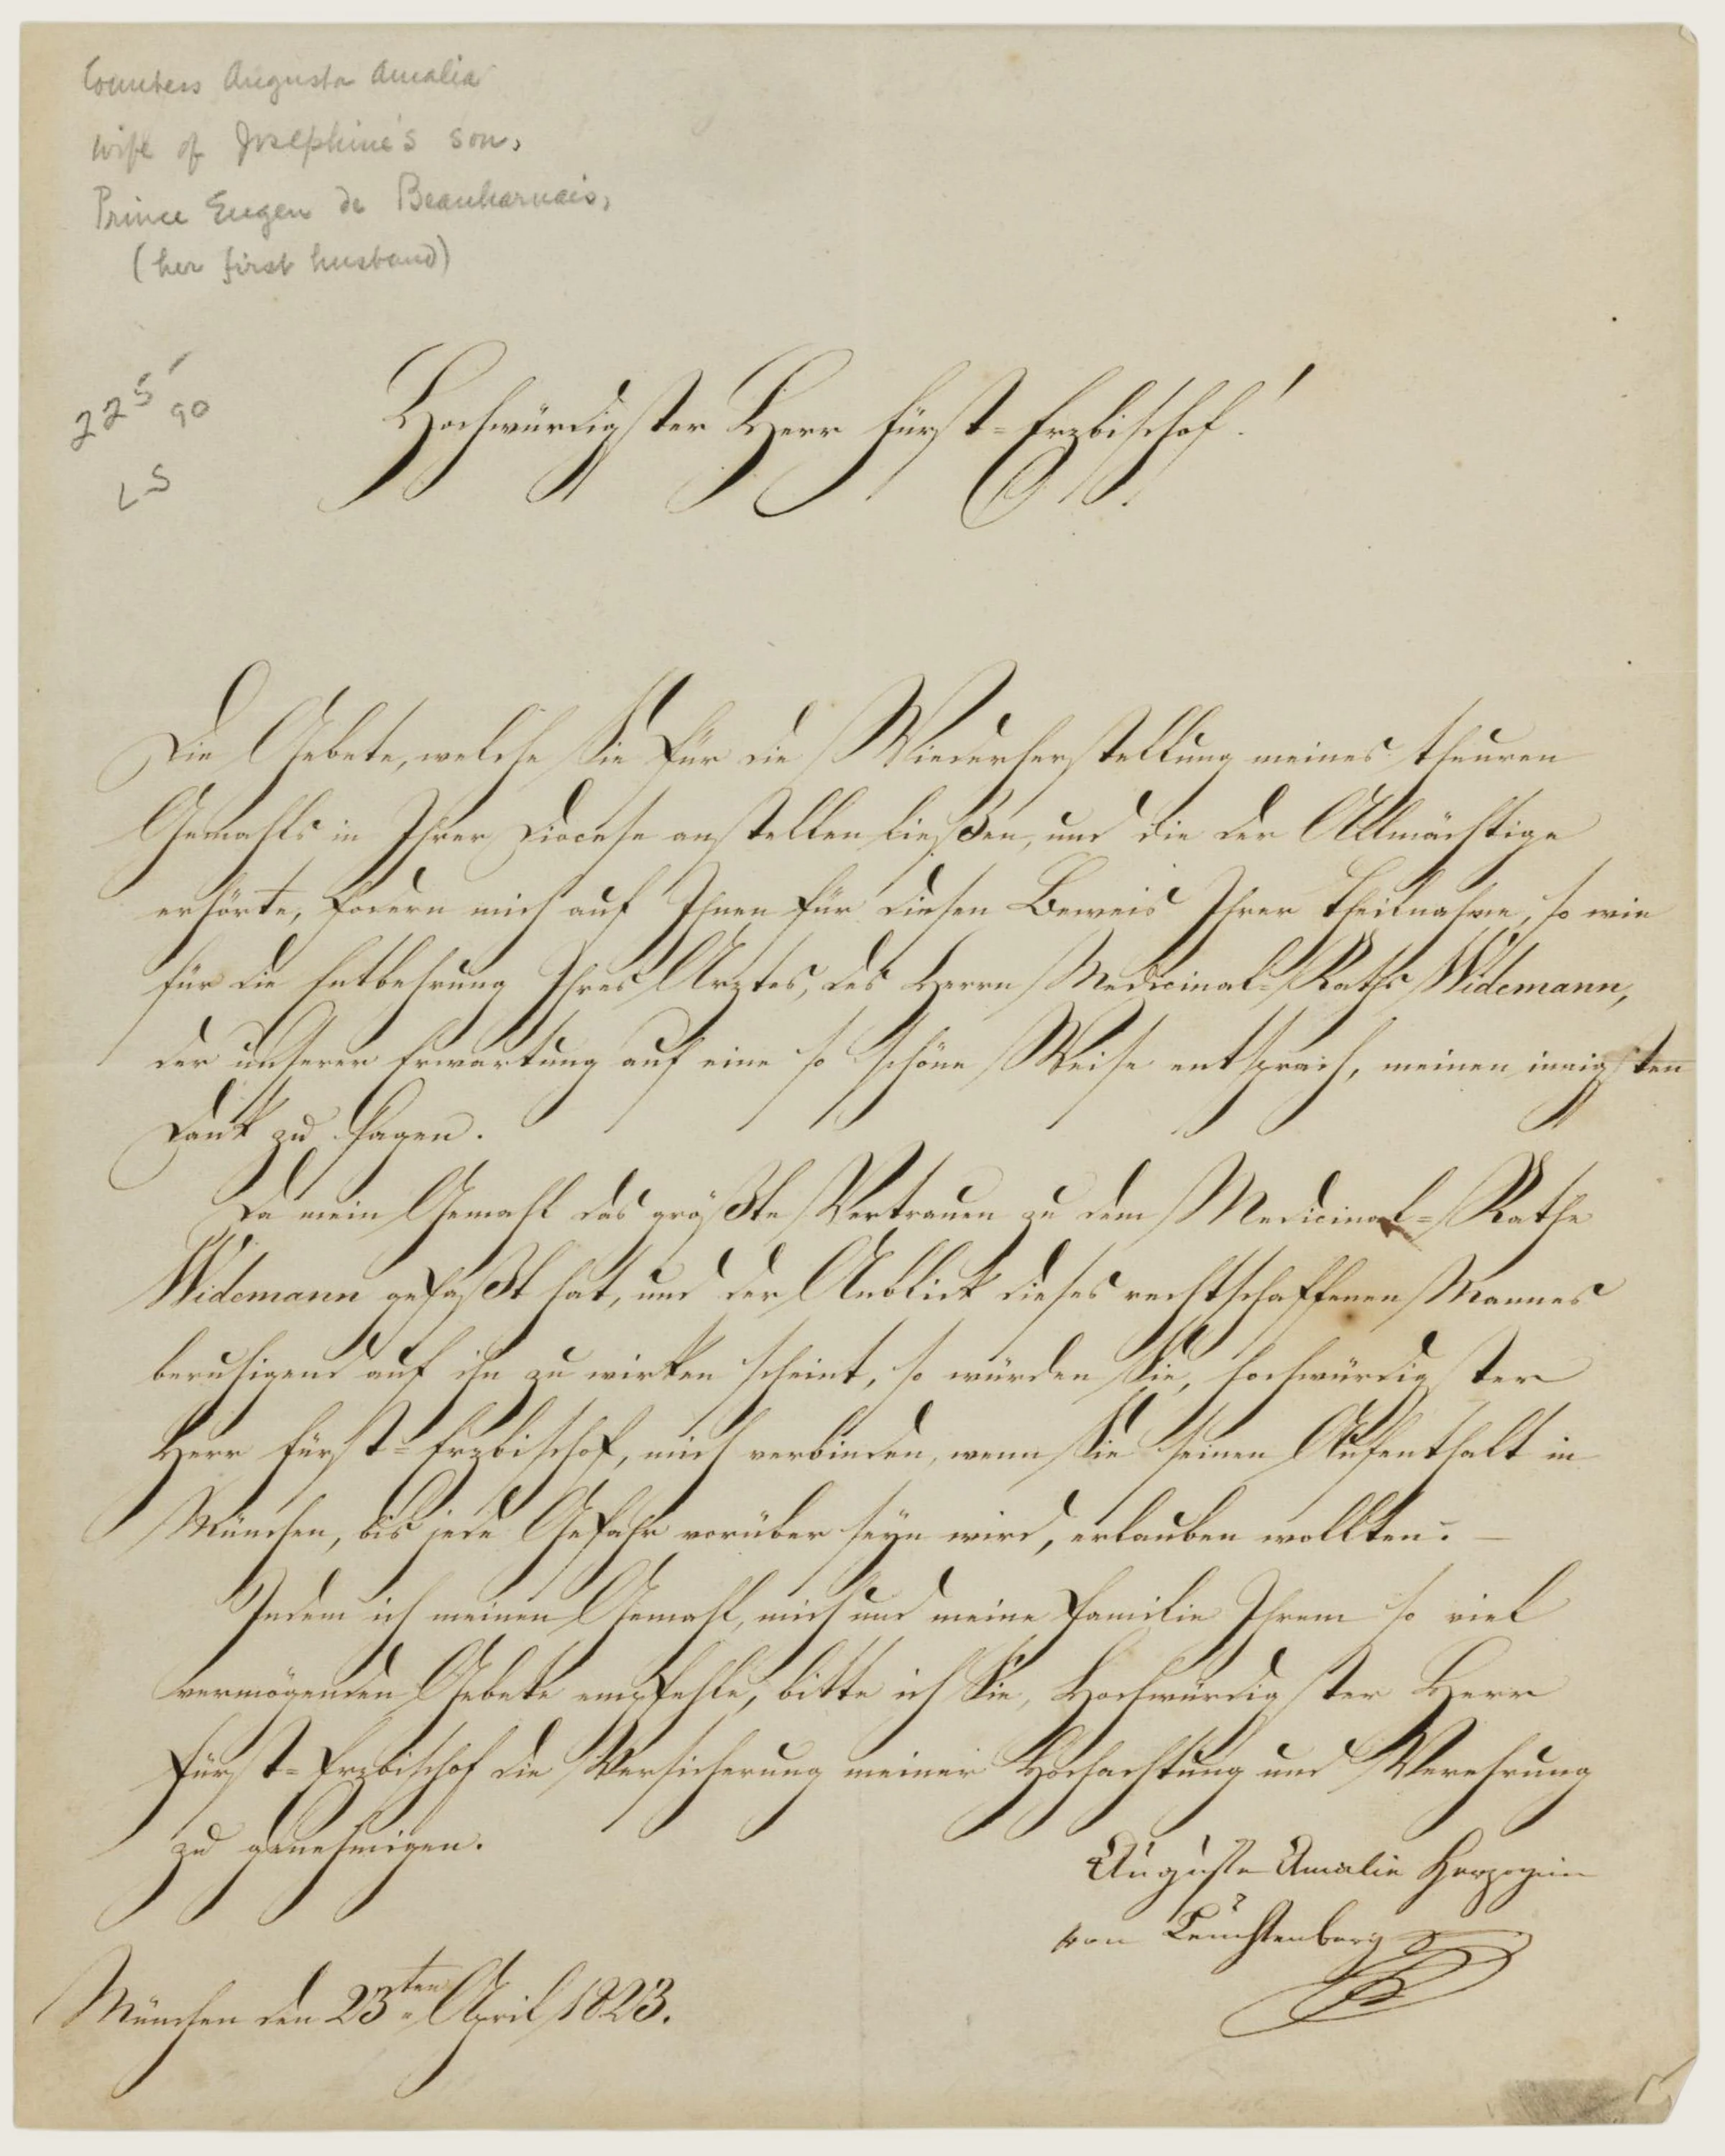 Countess Augusta Amalia
wife of Josephine's son,
Prince Eugen de Beauharnais,
(her first husband)
225 90
LS
Hochwürdigster Herr Fürst=Erzbischof!
Die Gebete, welche Sie für die Wiederherstellung meines theuren
Gemahls in Ihrer Diocese anstellen ließen, und die der Allmächtige
erhörte, fodern mich auf Ihnen für diesen Beweis Ihrer Theilnahme, so wie
für die Entbehrung Ihres Arztes, des Herrn Medicinal=Raths Widemann,
der unserer Erwartung auf eine so schöne Weise entsprach, meinen innigsten
Dank zu sagen.
Da mein Gemahl das größte Vertrauen zu dem Medicinal=Rathe
Widemann gefaßt hat, und der Anblick dieses rechtschaffenen Mannes
beruhigend auf ihn zu wirken scheint, so würden Sie, hochwürdigster
Herr Fürst=Erzbischof, mich verbinden, wenn Sie seinen Aufenthalt in
München, bis jede Gefahr vorüber seyn wird, erlauben wollten. –
Indem ich meinen Gemahl, mich und meine Familie Ihrem so viel
vermögenden Gebete empfehle, bitte ich Sie, Hochwürdigster Herr
Fürst=Erzbischof die Versicherung meiner Hochachtung und Verehrung
zu genehmigen.
Auguste Amalie Herzogin
von Leuchtenberg
München den 23ten April 1823.